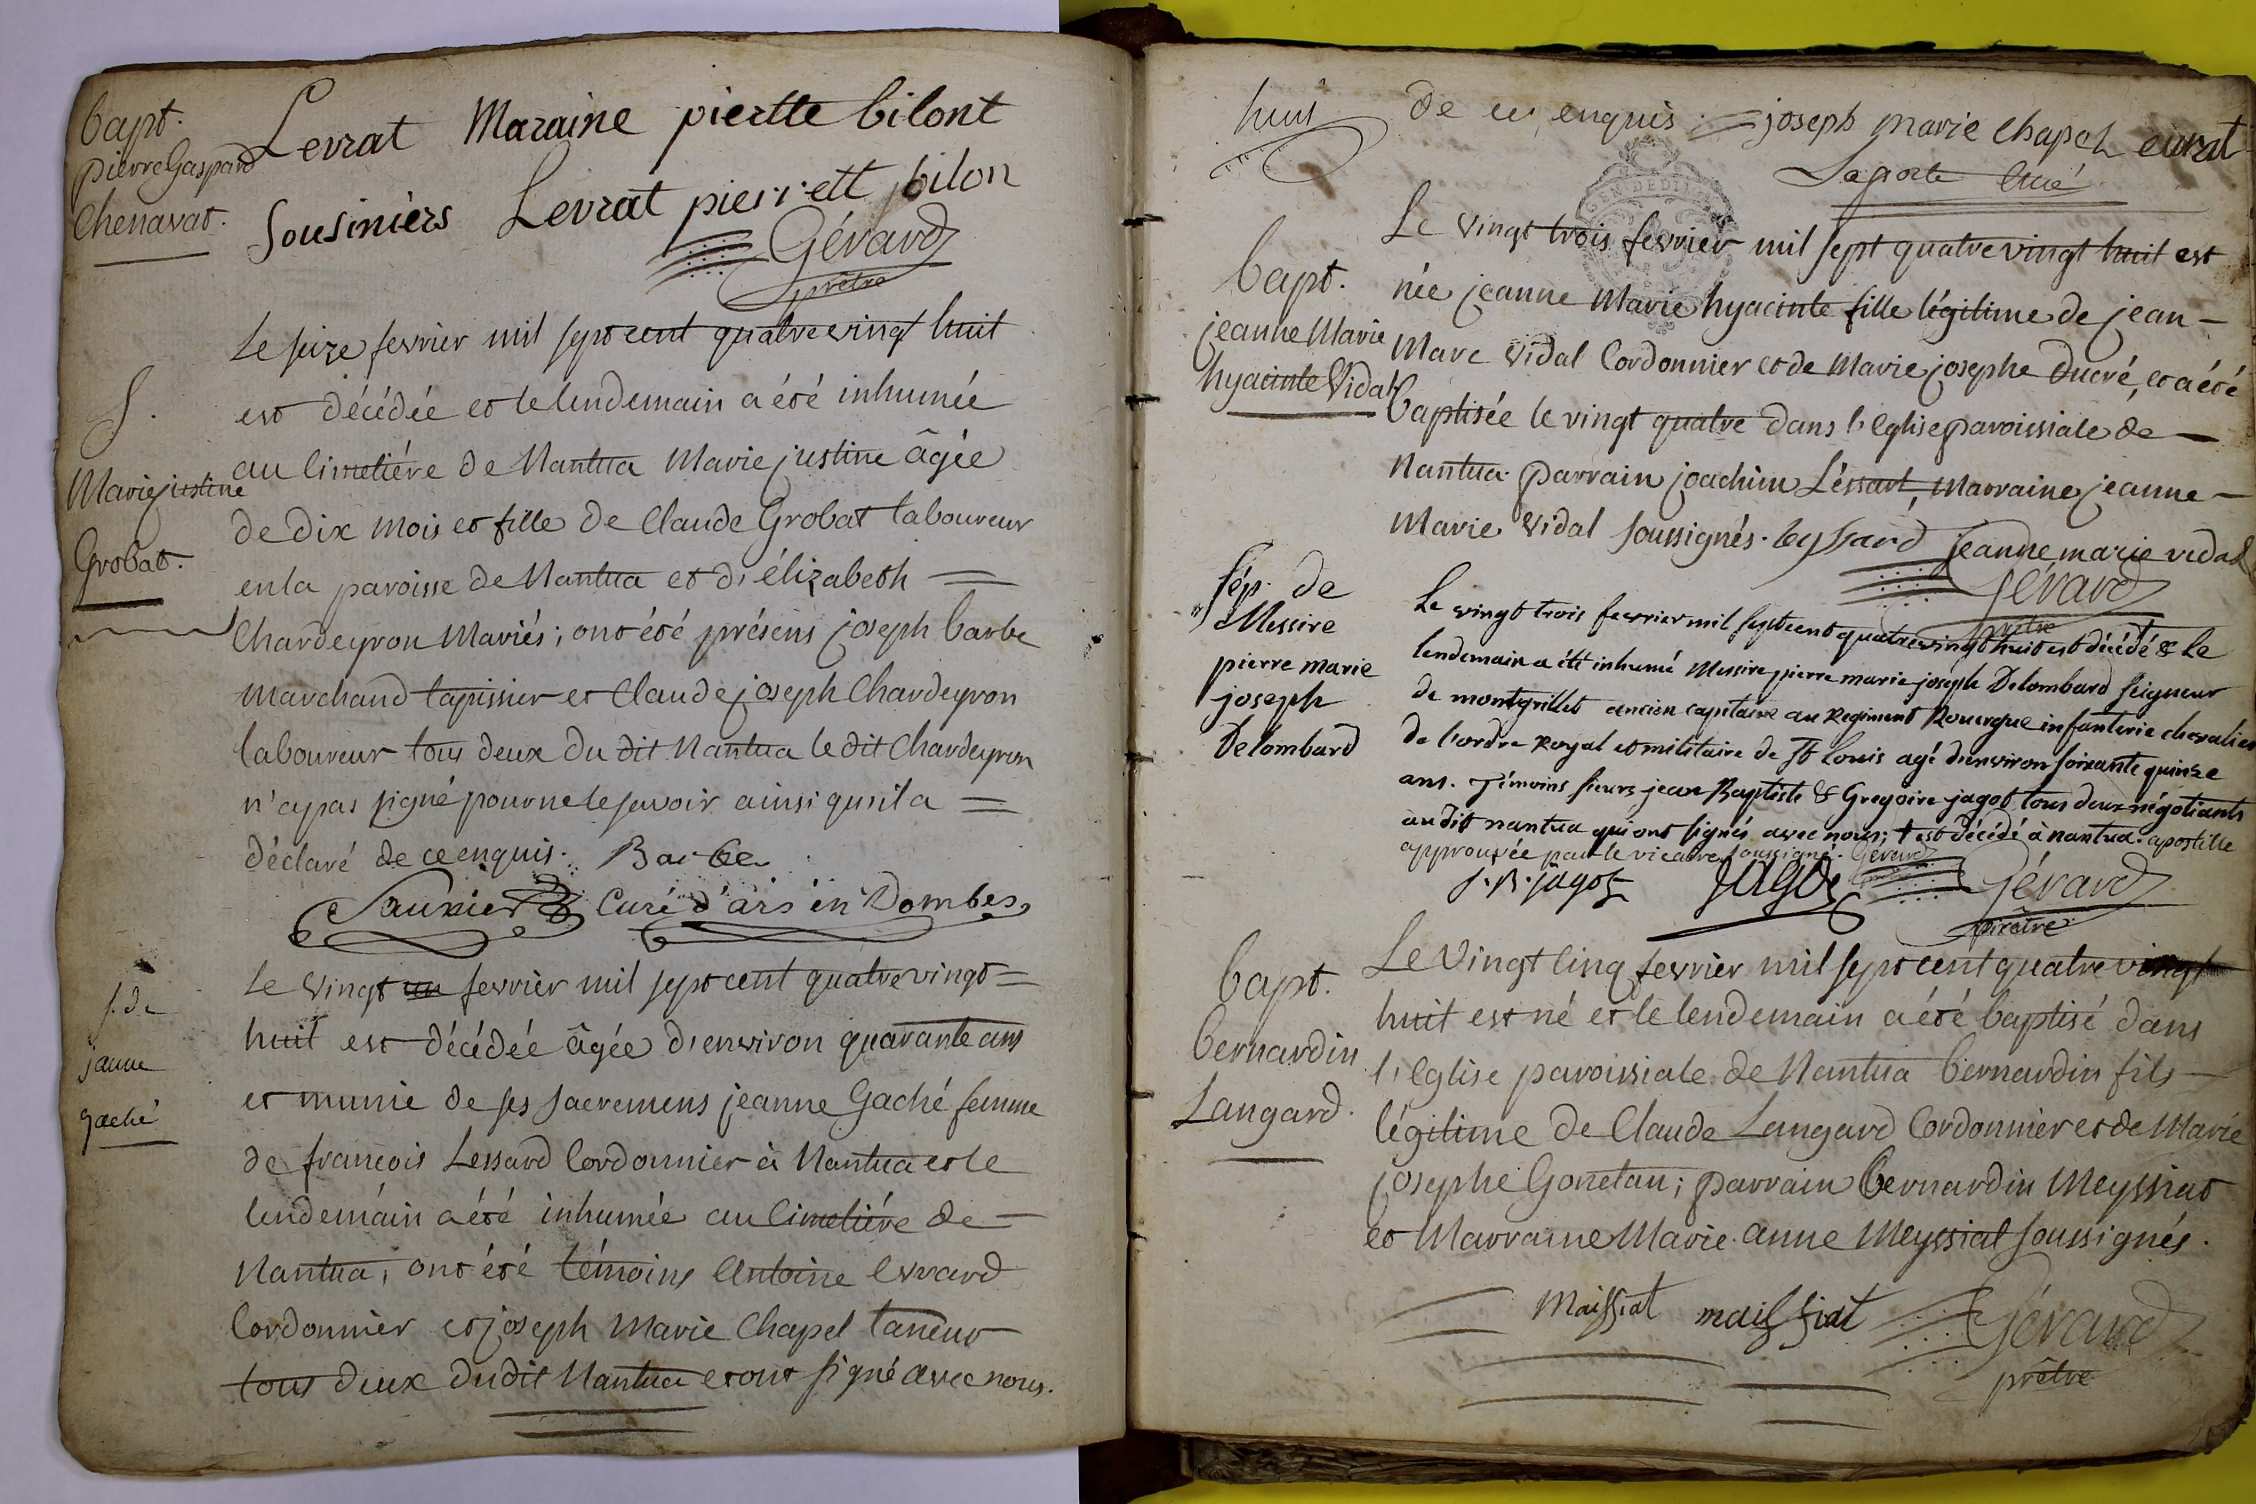 bapt.
pierre Gaspard
Chenavat.
Levrat Maraine pierette bilont
sousiniers Levrat pierrett pilon
Gérard
prêtre
Le seize fevrier mil sept cent quatre vingt huit
S.
Marie justine
Grobat.
est décédée et le lendemain a été inhumée
au Cimetiére de Nantua Marie justine âgée
de dix mois et fille de Claude Grobat laboureur
en la paroisse de Nantua et d'élizabeth =
Chardeyron Mariés; ont été présens joseph barbe
Marchand tapissier et Claude joseph Chardeyron
laboureur tous deux du dit Nantua le dit Chardeyron
n'a pas signé pour ne le savoir ainsi qu'il a =
déclaré de ce enquis. Barbe
Saunier Curé d'ars en Dombes
s. de
janne
gaché
Le vingt un fevrier mil sept cent quatre vingt =
huit est décédée âgée d'environ quarante ans
et munie de ses sacremens jeanne Gaché femme
de françois Lessard Cordonnier à Nantua et le
lendemain a été inhumée au Cimetiére de -
Nantua; ont été témoins Antoine Evrard
Cordonnier et joseph Marie Chapel taneur
tous deux du dit Nantua et ont signé avec nous.
huit
de ce enquis. joseph marie Chapel evrat
Laporte Curé
bapt.
jeanne Marie
hyacinte Vidal
Le vingt trois fevrier mil sept quatre vingt huit est
née jeanne Marie hyacinte fille légitime de jean -
Marc Vidal Cordonnier et de Marie josephe Ducré, et a été
baptisée le vingt quatre dans l'Eglise paroissiale de -
Nantua. parrain joachim Léssart, Marraine jeanne -
Marie Vidal soussignés. leyssard jeanne marie vidal
Gérard
prêtre
sép. de
Messire
pierre marie
joseph
Delombard
Le vingt trois fevrier mil sept cent quatre vingt huit est décédé & le
lendemain a été inhumé Messire pierre marie joseph Delombard seigneur
de montgrillet ancien capitaine au Regiment Rouergue infanterie chevalier
de l'ordre Royal et militaire de St Louis agé d'environ soixante quinze
ans. Témoins sieurs jean Baptiste & Gregoire jagot tous deux négotiants
au dit nantua qui ont signés avec nous; † est décédé à nantua. apostille
approuvée par le vicaire soussigné. Gérard
J. B. jagot jagot Gérard
prêtre
bapt.
bernardin
Langard.
Le vingt Cinq fevrier mil sept cent quatre vingt
huit est né et le lendemain a été baptisé dans
l'Eglise paroissiale de Nantua bernardin fils -
légitime de Claude Langard Cordonnier et de Marie
josephe Gonetan; parrain bernardin Meyssiat
et Marraine Marie anne Meyssiat soussignés.
Maissiat maissiat Gérard
prêtre